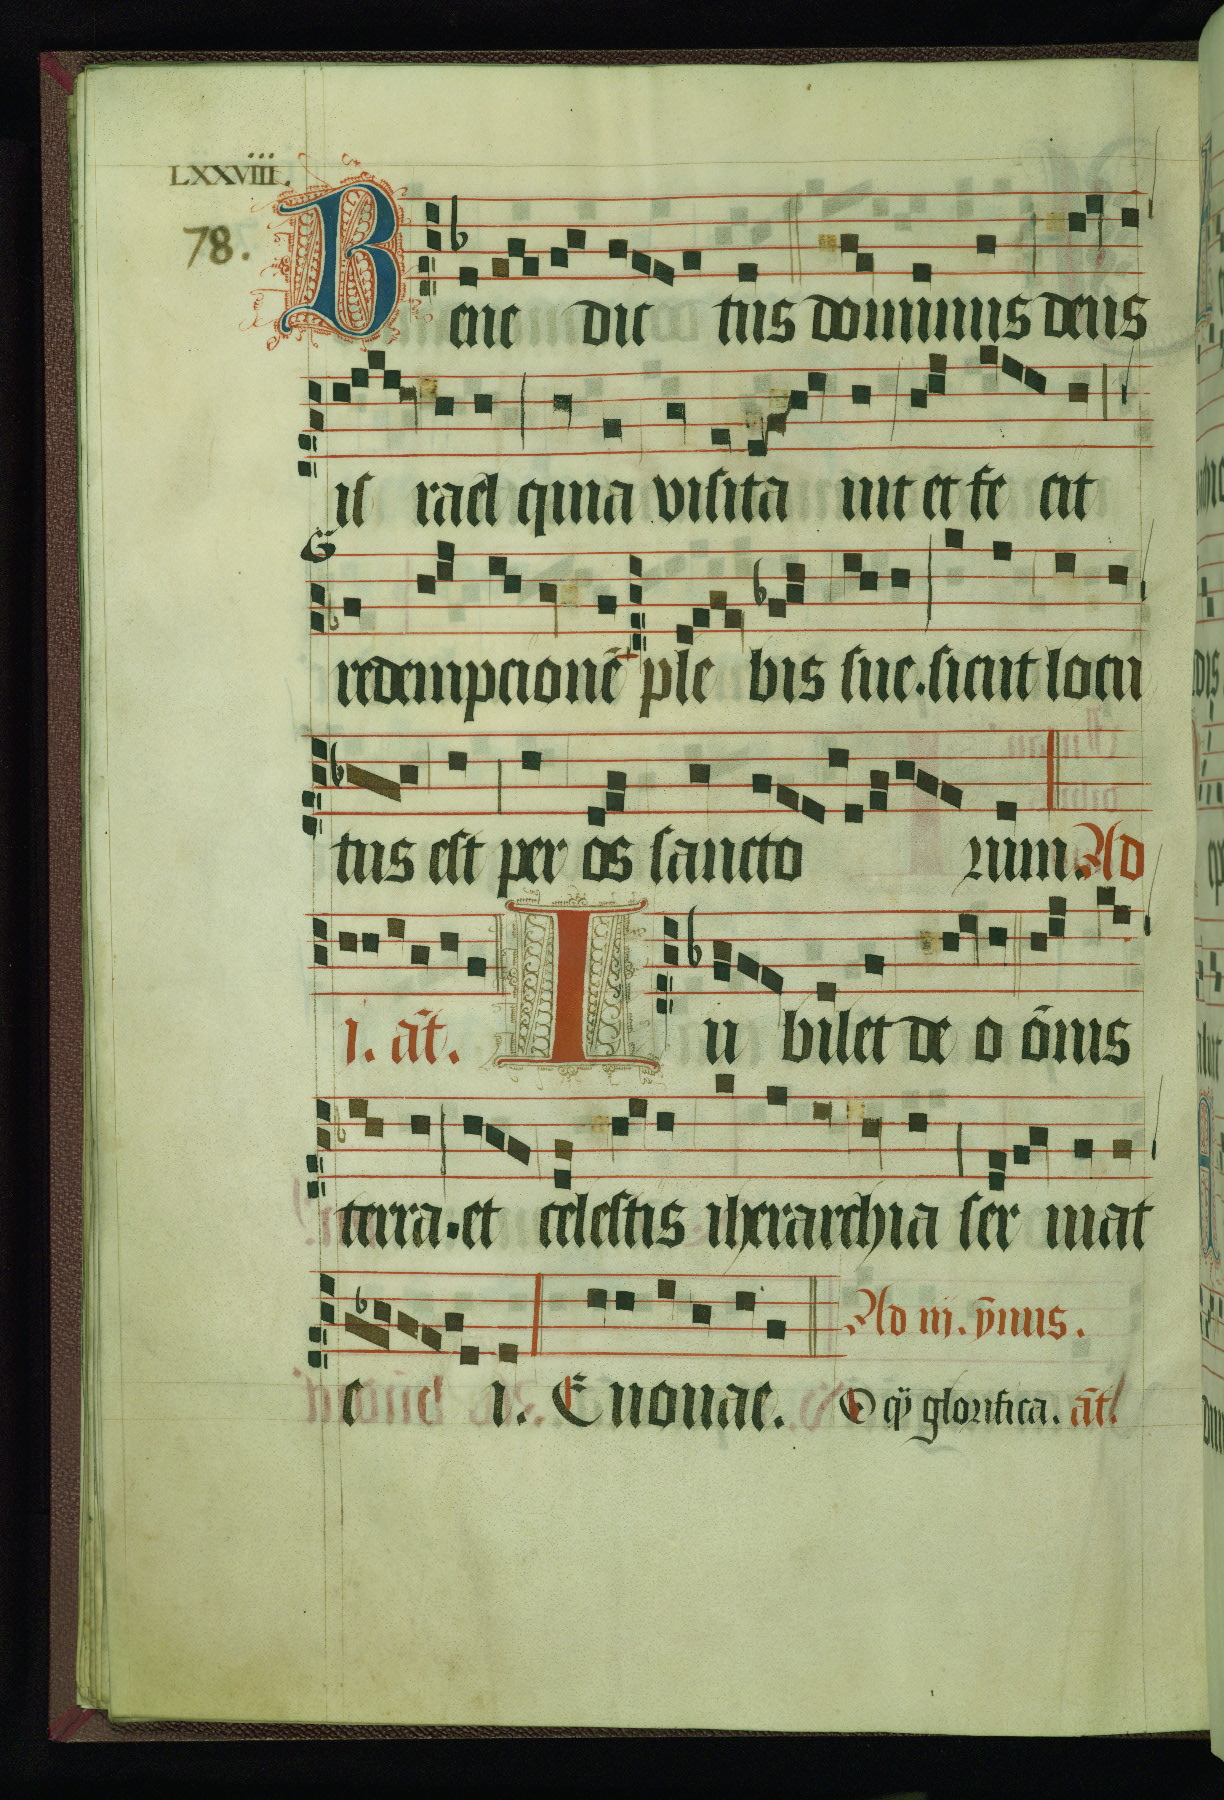 LXXVIII.
78.
Bene dic tus dominus deus
is rael quia visita uit et fe cit
redempcionē ple bis sue. sicut locu
tus est per os sancto rum. Ad
i. añt. Iu bilet de o om̄is
terra. et celestis iherarchia ser uiat
e i. Euouae. Ad iij. ymnus.
O qͣ glorifica. añt.